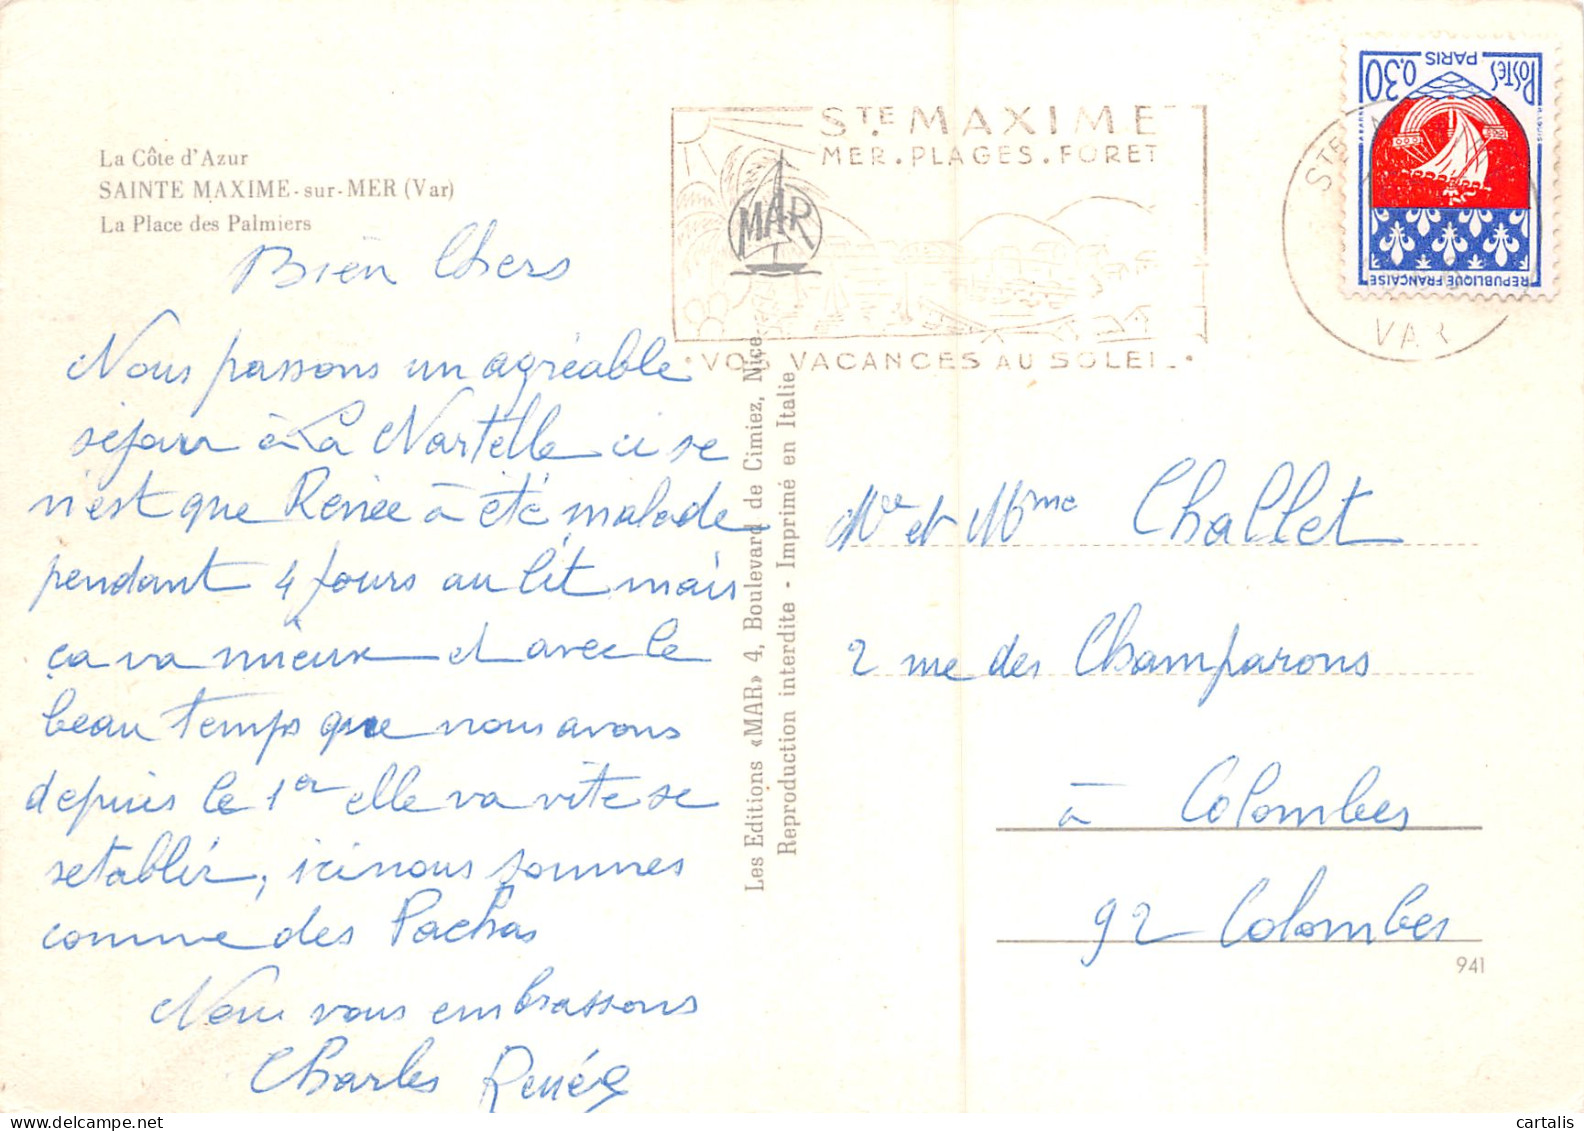 La Côte d'Azur
SAINTE MAXIME-sur-MER (Var)
La Place des Palmiers
Bien Chers
Nous passons un agréable
séjour à La Nartelle ci se
n'est que Renée à été malade
pendant 4 jours au lit mais
ça va mieux et avec le
beau temps que nous avons
depuis le 1er elle va vite se
setablir, ici nous sommes
comme des Pachas
Nous vous embrassons
Charles Renée
STE. MAXIME
MER. PLAGES. FORET
MAR
• VOS VACANCES AU SOLEIL •
STE
VAR
POSTES PARIS 0,30
REPUBLIQUE FRANÇAISE
Les Editions «MAR» 4, Boulevard de Cimiez, Nice
Reproduction interdite - Imprimé en Italie
Mr et Mme Challet
2 rue des Champarons
à Colombes
92 Colombes
941
cartalis
delcampe.net